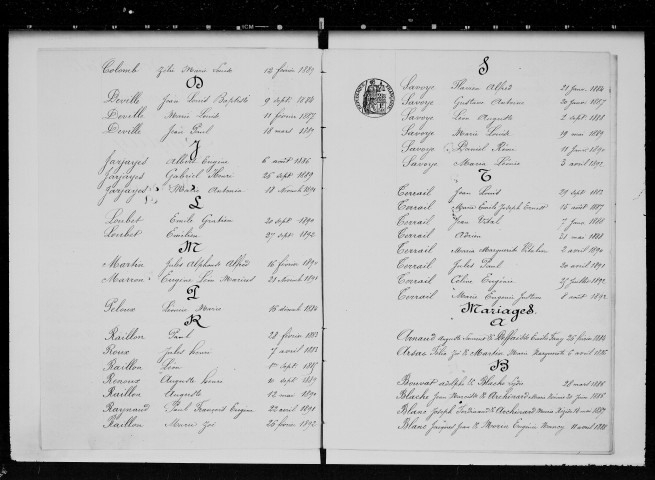 Colomb Zoé Marie Louise 12 février 1889
D
Deville Jean Louis Baptiste 9 sept 1884
Deville Marie Louise 11 février 1887
Deville Jean Paul 18 mars 1889
J
Jarjayes Albert Eugène 6 août 1886
Jarjayes Gabriel Henri 26 sept 1889
Jarjayes Marie 18
L
Loubet Emile Gratien 20 sept 1890
Loubet Emilien 27 sept 1892
M
Martin Jules Alphonse Alfred 16 février 1890
Marron Eugène Léon Marius 21
P
Peloux Marie 16 1884
R
Raillon Paul 28 février 1883
Roux Jules 7 avril 1883
Raillon Léon 1er sept 1885
Renoux Auguste 10 sept 1889
Raillon Auguste 12 mai 1890
Raynaud Paul François Eugène 22 avril 1891
Raillon Marie Zoé 26 février 1892
S
Savoye Flavien Alfred 21 janv. 1884
Savoye Gustave 20 janv. 1887
Savoye Léon Auguste 2 sept 1888
Savoye Marie Louise 19 mai 1889
Savoye Daniel 11 1890
Savoye Maria 3 avril 1892
T
Terrail Jean Louis 29 sept 1883
Terrail Marie Emile Joseph Ernest 15 août 1887
Terrail Jean Vital 7 1888
Terrail Adrien 21 mai 1888
Terrail Maria Marguerite 2 avril 1890
Terrail Jules Paul 20 avril 1891
Terrail Céline Eugénie 27 juillet 1892
Terrail Marie Eugénie 8 août 1892
Mariages
A
Arnaud Auguste 26 février 1884
Arsac Félix & Martin Marie Marguerite 6 avril 1886
B
Bouvat Adolphe & Blache 28 mars 1886
Blache Jean & Archinard Marie 1886
Blanc Joseph Ferdinand & Archinard Maria 1887
Blanc Jacques Jean & Morin Eugénie 11 avril 1888